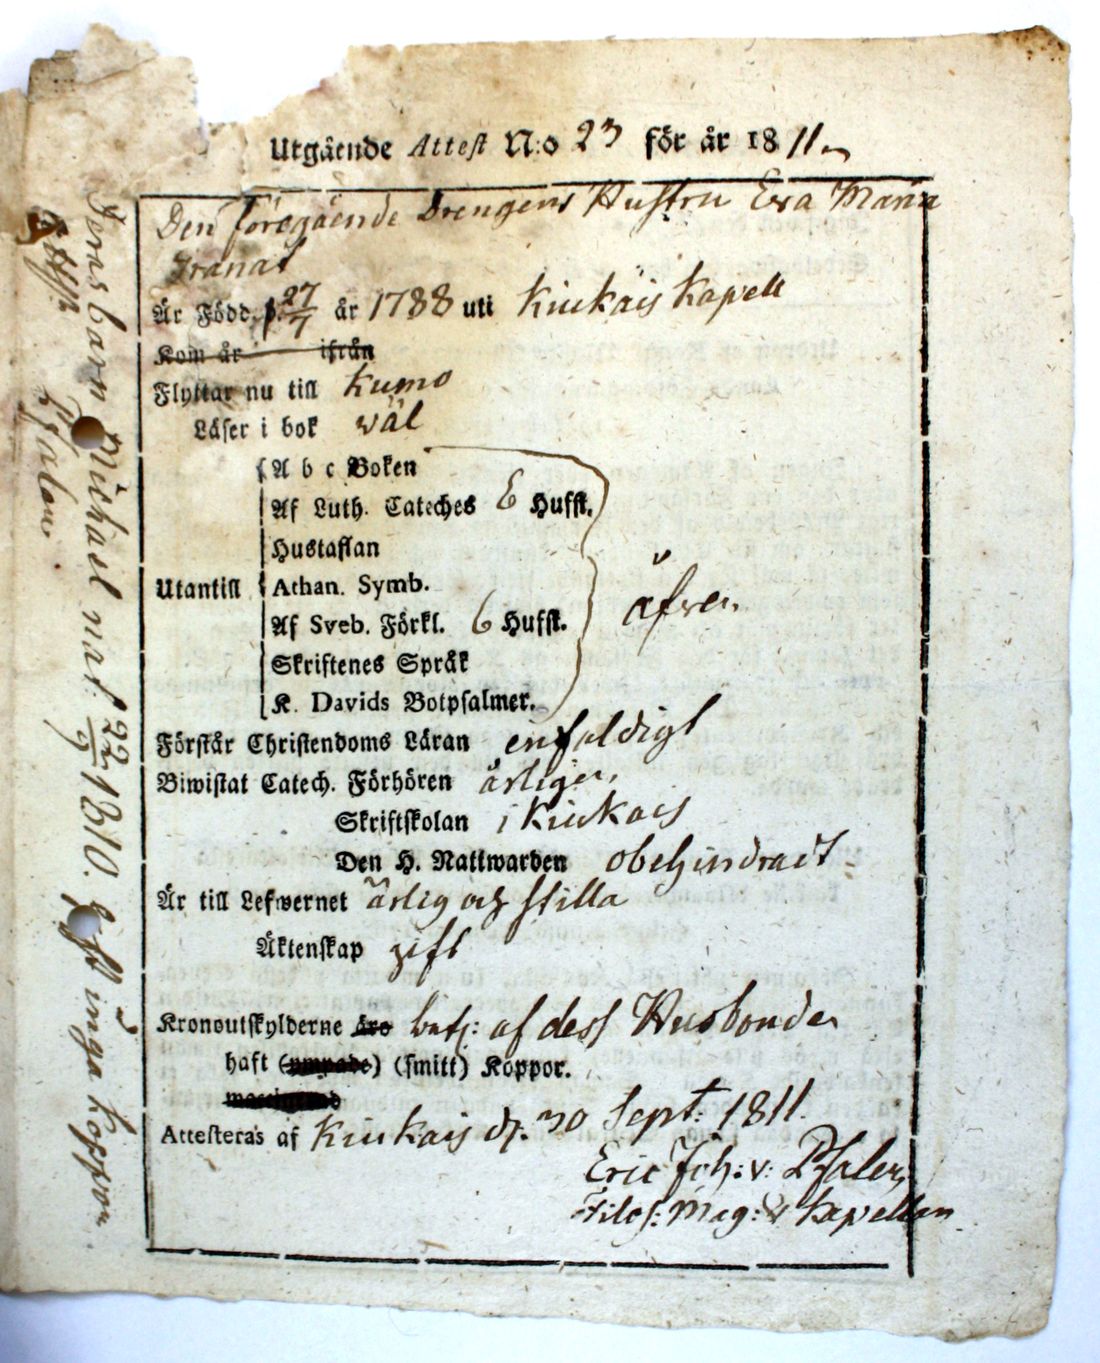 Utgående Attest N:o 23 för år 1811
Den föregående Drengens Hustru Eva Maria
Granat
Är Född. d. 27/7 år 1788 uti Kiukais Kapell
Kom år ifrån
Flyttar nu till Kumo
Läser i bok wäl
A b c Boken
Af Luth. Cateches 6 Hufst.
Hustaflan
Utantill Athan. Symb.
Af Sveb. Förkl. 6 Hufst. äfven
Skriftenes Språk
K. Davids Botpsalmer.
Förstår Christendoms Läran enfaldigt
Biwistat Catech. Förhören årligen,
Skriftskolan i Kiukais
Den H. Nattwarden obehindradt
Är till Lefwernet ärlig och stilla
Äktenskap gift
Kronoutskylderne äro bet: af dess Husbonde
haft (ympade) (smitt) Koppor.
Attesteras af Kiukais d. 30 Sept: 1811.
Eric Joh: v: Pfaler,
Filos: Mag: & Kapellan
Deras barn Michael nat. 22/9 1810. haft inga koppor
v. Pfaler